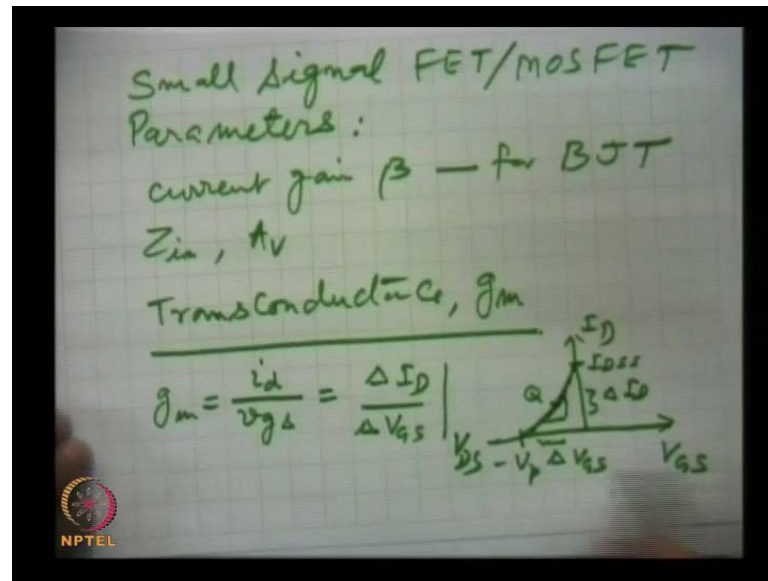 Small Signal FET/MOSFET
Parameters:
current gain β — for BJT
Zin, AV
Transconductance, gm
gm = id/vgs = ΔID/ΔVGS |VDS
ID
IDSS
Q
ΔID
-Vp
ΔVGS
VGS
NPTEL